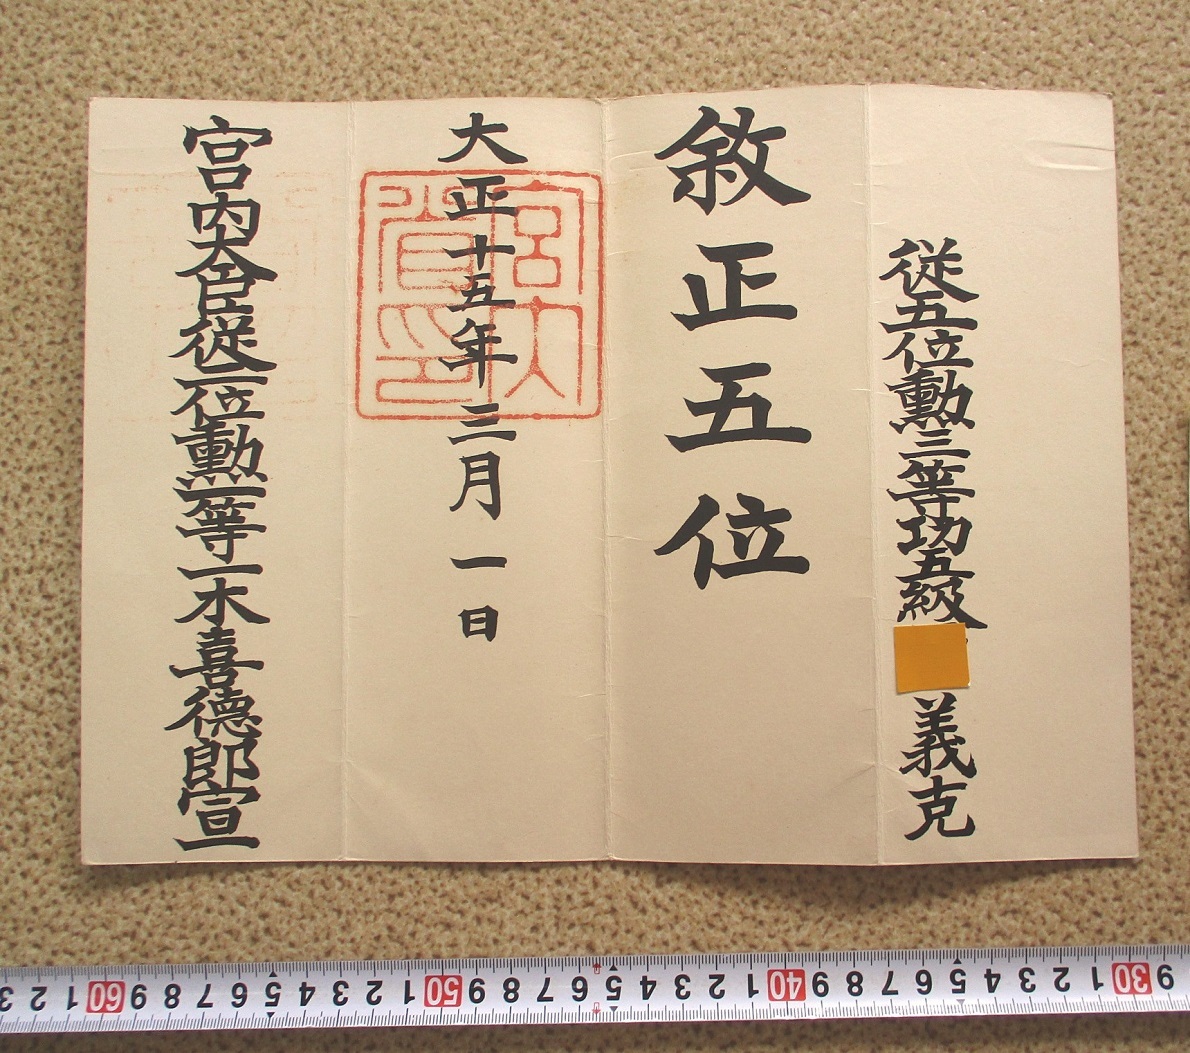 従五位勲三等功五級
義克
敘正五位
大正十五年三月一日
宮内省印
宮内大臣従二位勲一等一木喜徳郎宣
9 30 1 2 3 4 5 6 7 8 9 40 1 2 3 4 5 6 7 8 9 50 1 2 3 4 5 6 7 8 9 60 1 2 3